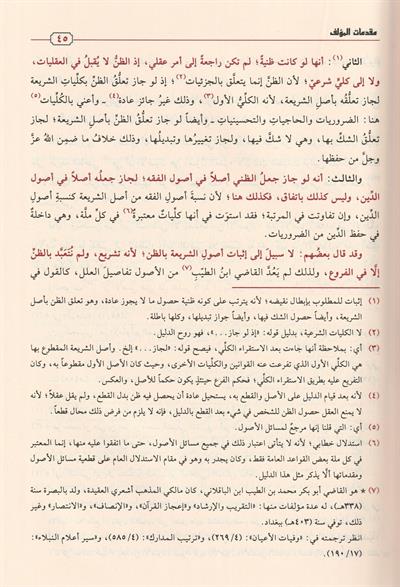 مقدمات المؤلف
٤٥
الثاني(١): أنها لو كانت ظنية؛ لم تكن راجعةً إلى أمر عقلي، إذ الظنُّ لا يُقبلُ في العقليات،
ولا إلى كليٍّ شرعيّ؛ لأن الظنَّ إنما يتعلَّق بالجزئيات(٢)؛ إذ لو جاز تعلُّقُ الظنِّ بكلِّيات الشريعة
لجاز تعلُّقه بأصل الشريعة، لأنه الكلِّيُّ الأول(٣)، وذلك غيرُ جائز عادة(٤) ـ وأعني بالكُلِّيات(٥)
هنا: الضروريات والحاجيات والتحسينيات ـ وأيضاً لو جاز تعلُّقُ الظنّ بأصل الشريعة؛ لجاز
تعلُّقُ الشكِّ بها، وهي لا شكَّ فيها، ولجاز تغييرُها وتبديلُها، وذلك خلافُ ما ضمِن اللهُ عزَّ
وجلَّ من حفظها.
والثالث: أنه لو جاز جعلُ الظني أصلاً في أصول الفقه؛ لجاز جعلُه أصلاً في أصول
الدِّين، وليس كذلك باتفاق، فكذلك هنا؛ لأن نسبةَ أصولِ الفقه من أصل الشريعة كنسبةِ أصولِ
الدِّين، وإن تفاوتت في المرتبة؛ فقد استوَت في أنها كلِّياتٌ معتبرةٌ(٦) في كلِّ ملَّة، وهي داخلةٌ
في حفظ الدِّين من الضروريات.
وقد قال بعضُهم: لا سبيلَ إلى إثبات أصولِ الشريعة بالظن؛ لأنه تشريع، ولم نُتَعبَّد بالظنِّ
إلَّا في الفروع، ولذلك لم يَعُدَّ القاضي ابنُ الطيِّبِ(٧) من الأصول تفاصيلَ العلل، كالقول في
(١) إثبات للمطلوب بإبطال نقيضه؛ لأنه يترتب على كونه ظنية حصول ما لا يجوز عادة، وهو تعلق الظن بأصل
الشريعة، وأيضاً حصول الشك فيها، وأيضاً جواز تبديلها، وكلها باطلة.
(٢) لا الكليات الشرعية، بدليل قوله: «إذ لو جاز ...»، فهو روح الدليل.
(٣) أي: بملاحظة أنها جاءت بعد الاستقراء الكلّي، فيصح قوله: «لجاز ...» إلخ. وأصل الشريعة المقطوع بها
هي الكلّي الأول الذي تفرعت عنه القوانين والكليات الأخرى، وحيث كان الأصل الأول مقطوعاً به، وكان
التفريع عليه بطريق الاستقراء الكلّي؛ فحكم الفرع حينئذٍ يكون حكماً للأصل، والعكس.
(٤) لأنه بعد قيام الدليل على الأصل والقطع به، يستحيل عادة أن يحصل فيه ظن بدل القطع، ولم يقل عقلاً؛ لأنه
لا يمنع العقل حصول الظن للشخص في شيء بعد القطع بالدليل، فإنه لا يلزم من فرض ذلك محال قطعاً.
(٥) أي: التي قلنا إنها مرجع لمسائل الأصول.
(٦) استدلال خطابي؛ لأنه لا يتأتى اعتبار ذلك في جميع مسائل الأصول، حتى ما اتفقوا عليه منها، إنما المعتبر
في كل ملة بعض القواعد العامة فقط، وكان يجدر به وهو في مقام الاستدلال العام على قطعية مسائل الأصول
ومقدماتها ألّا يذكر مثل هذا الدليل.
(٧) * هو القاضي أبو بكر محمد بن الطيب ابن الباقلاني، كان مالكي المذهب أشعري العقيدة، ولد بالبصرة سنة
(٣٣٨هـ)، له عدة مؤلفات منها: «التقريب والإرشاد» و«إعجاز القرآن»، و«الإنصاف»، و«الانتصار» وغير
ذلك، توفي سنة (٤٠٣هـ) ببغداد.
انظر ترجمته في: «وفيات الأعيان»: (٢٦٩/٤)، و«ترتيب المدارك»: (٥٨٥/٤)، و«سير أعلام النبلاء»:
(١٩٠/١٧).